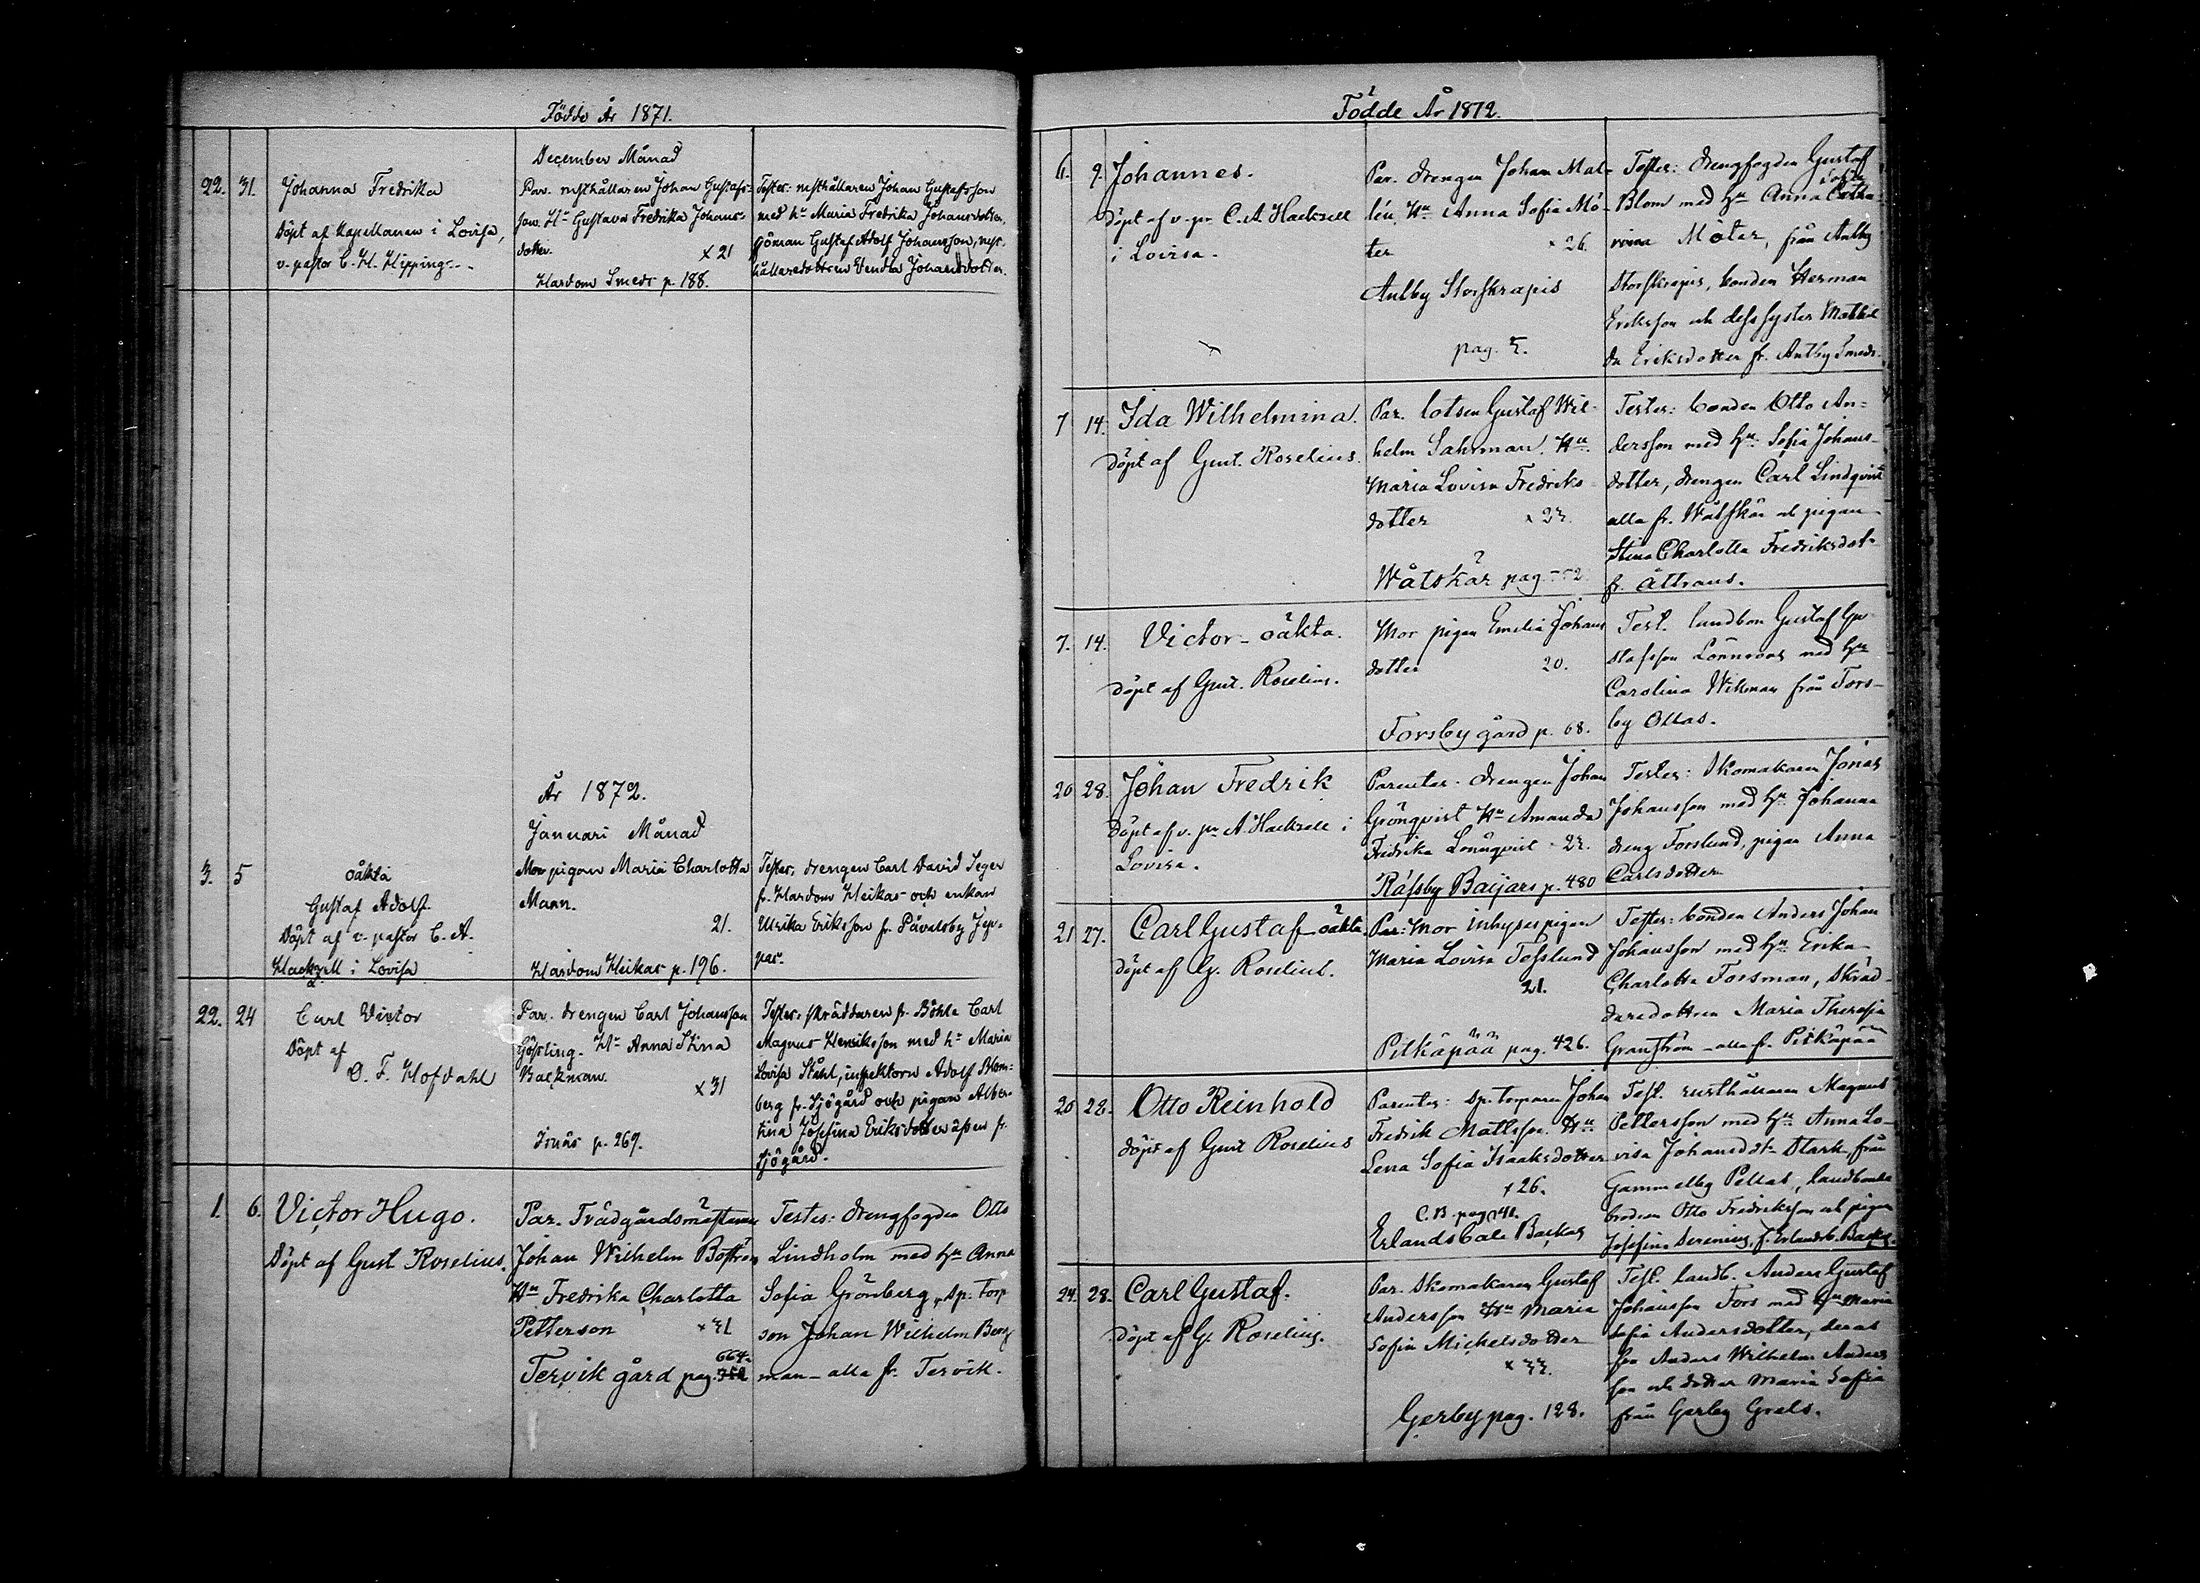 Födde År 1871.
December Månad
22. 31. Johanna Fredrika
Döpt af Kapellanen i Lovisa,
v. pastor C. H. Hipping.
Par. rusthållaren Johan Gustafs-
son. Hu Gustava Fredrika Johans-
dotter. x 21
Hardom Smeds p. 188.
Testes: rusthållaren Johan Gustafsson
med hu Maria Fredrika Johansdotter,
Gustaf Adolf Johansson, rust-
hållaredottren Vendla Johansdotter.
År 1872.
Januari Månad
3. 5 oäkta
Gustaf Adolf
Döpt af v. pastor C. A.
Hackzell i Lovisa
Mor pigan Maria Charlotta
Mann.
21.
Hardom Heikas p. 196.
Testes: drengen Carl David Seger
fr. Hardom Heikas och enkan
Ulrika Eriksson fr. Påvalsby Jep-
pas.
22. 24 Carl Victor
Döpt af
O. F. Hofdahl
Par. drengen Carl Johansson
Gösling. Hu Anna Stina
Backman.
x 31
Isnäs p. 269.
Testes: skräddaren fr. Böhle Carl
Magnus Henriksson med hu Maria
Lovisa Ståhl, inspektorn Adolf Blom-
berg fr. Sjögård och pigan Alber-
tina Josefina Eriksdotter äfven fr.
Sjögård.
1. 6. Victor Hugo.
Döpt af Gust Roselius.
Par. Trädgårdsmästaren
Johan Wilhelm Boström
Hu Fredrika Charlotta
Petterson x 31
664.
Tervik gård pag.
Testes: drengfogden Otto
Lindholm med hu Anna
Sofia Grönberg, sp. torp
son Johan Wilhelm Berg
man - alla fr. Tervik.
Födde År 1872.
6. 9. Johannes.
Döpt af v. pr C. A Hackzell
i Lovisa.
Par. drengen Johan Mal-
lén Hu Anna Sofia Mö-
ter x 26.
Antby Storskrapis
pag. 5.
Testes: drengfogden Gustaf
Blom med hu Anna Catha-
rina Möter, från Antby
Storskrapis, bonden Herman
Eriksson och dess syster Mathil
da Eriksdotter fr. Antby Smeds.
7 14. Ida Wilhelmina.
Döpt af Gust. Roselius.
Par. lotsen Gustaf Wil-
helm Sahrman. Hu
Maria Lovisa Fredriks
dotter
Våtskär pag.
Testes: bonden Otto An-
dersson med hu Sofia Johans-
dotter, drengen Carl Lindqvist
alla fr. Våtskär och pigan
Stina Charlotta Fredriksdot-
fr.
7. 14. Victor - oäkta.
Döpt af Gust. Roselius.
Mor pigan Emilia Johans
dotter 20.
Forsby gård p. 68.
Test. landbon Gustaf Gu-
stafsson Lönnroos med hu
Carolina Wikman från Fors-
by Ollas.
20 28. Johan Fredrik
Döpt af v. pr A Hackzell i
Lovisa.
Parentes. drengen Johan
Grönqvist Hu Amanda
Fredrika Lönnqvist
Räfsby Baijars p. 480
Testes: Skomakaren Jonas
Johansson med hu Johanna
dreng Forslund, pigan Anna
Carlsdotter
21 27. Carl Gustaf oäkta.
Döpt af G. Roselius.
Par: Mor inhysespigan
Maria Lovisa Forslund
21.
Pitkäpää pag. 426.
Testes: bonden Anders Johan
Johansson med hu Erika
Charlotta Forsman, Skräd-
daredottren Maria Theresia
Granström - alla fr. Pitkäpää
20 22. Otto Reinhold
döpt af Gust Roselius
Parentes: sp. torparen Johan
Fredrik Mattsson Hu
Lena Sofia Isaaksdotter
x 26.
C. B. pag 41.
Erlandsböle Backas
Test. rusthållaren Magnus
Pettersson med hu Anna Lo-
visa Johansdtr Stark, från
Gammelby Pellas, landbonde
brodren Otto Fredriksson och pigan
Josefina Serenius, fr. Erlandsb. Backas.
24. 28. Carl Gustaf.
Döpt af G. Roselius.
Par. Skomakaren Gustaf
Andersson Hu Maria
Sofia Michelsdotter
x 33.
Gerby pag. 128.
Test. landb. Anders Gustaf
Johansson Fors med hu Maria
Sofia Andersdotter, deras
son Anders Wilhelm Anders
son och dotter Maria Sofia
från Gerby Grels.